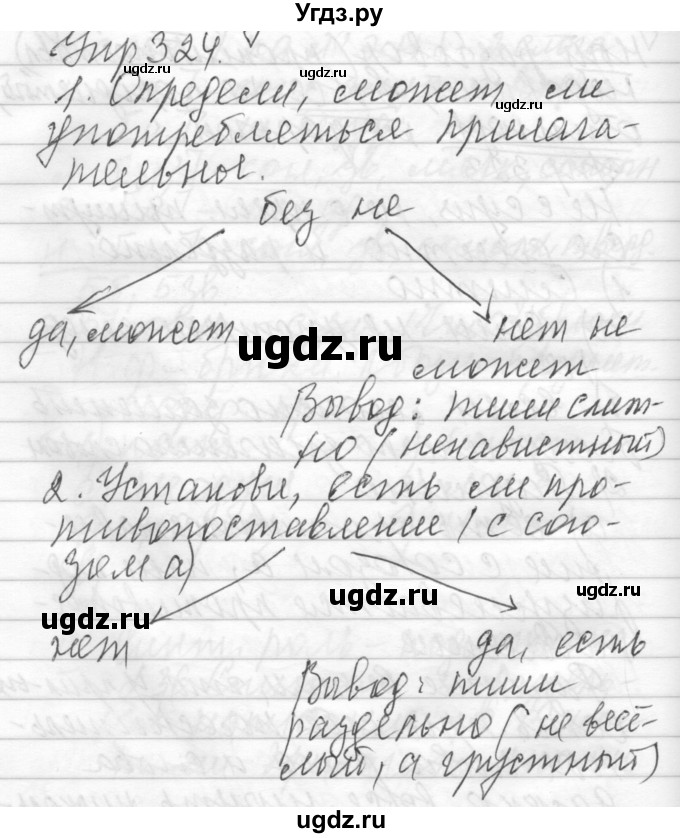 Угдз.ру
Упр 324.
ugdz.ru ugdz.ru ugdz.ru
1. Определи, может ли
употребляеться прилага-
тельные.
без не
да, может нет не
ugdz.ru
может
Вывод: пиши слит-
но (ненавистный)
2. Установи, есть ли про-
тивопоставление (с сою-
зом а)
ugdz.ru ugdz.ru ugdz.ru
нет да, есть
Вывод: пиши
раздельно (не весё-
лый, а грустный)
ugdz.ru ugdz.ru ugdz.ru
Угдз.ру